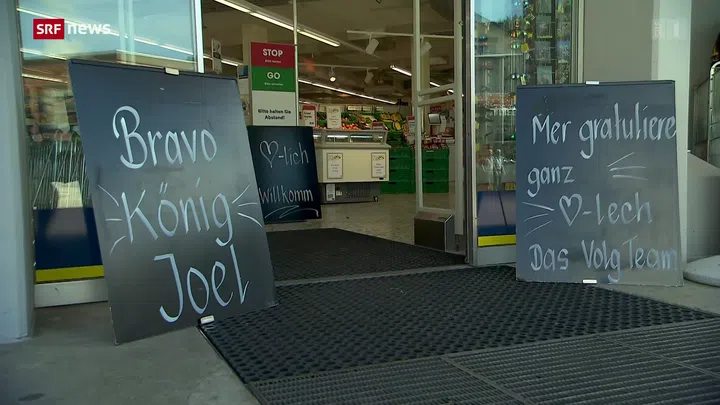 SRF news
STOP
GO
Bitte halten Sie
Abstand!
Bravo
König
Joel
♡-lich
Willkomm
Mer gratuliere
ganz
♡-lech
Das Volg Team